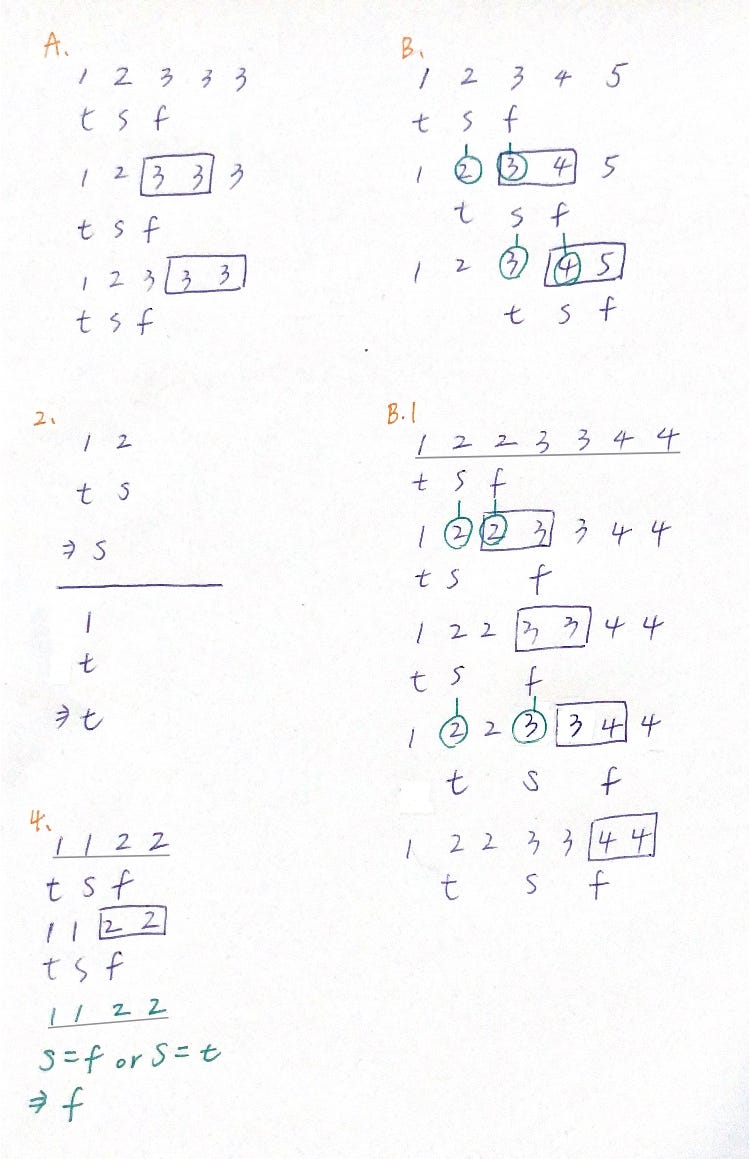 A.
1 2 3 3 3
t s f
1 2 3 3 3
t s f
1 2 3 3 3
t s f
B.
1 2 3 4 5
t s f
1 2 3 4 5
t s f
1 2 3 4 5
t s f
2.
1 2
t s
⇒ s
1
t
⇒ t
B.1
1 2 2 3 3 4 4
t s f
1 2 2 3 3 4 4
t s f
1 2 2 3 3 4 4
t s f
1 2 2 3 3 4 4
t s f
1 2 2 3 3 4 4
t s f
4.
1 1 2 2
t s f
1 1 2 2
t s f
1 1 2 2
s=f or s=t
⇒ f